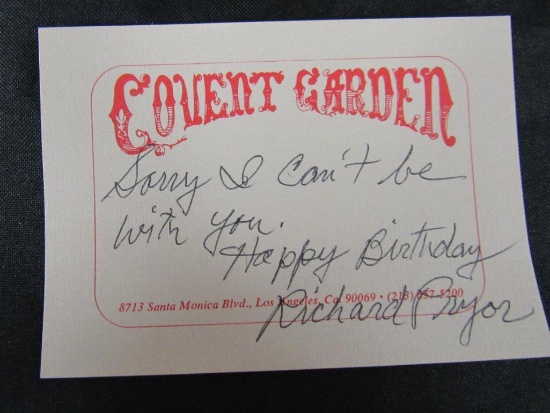 COVENT GARDEN
Sorry I can't be
with you.
Happy Birthday
8713 Santa Monica Blvd., Los Angeles, Ca. 90069 • (213) 657-5200
Richard Pryor